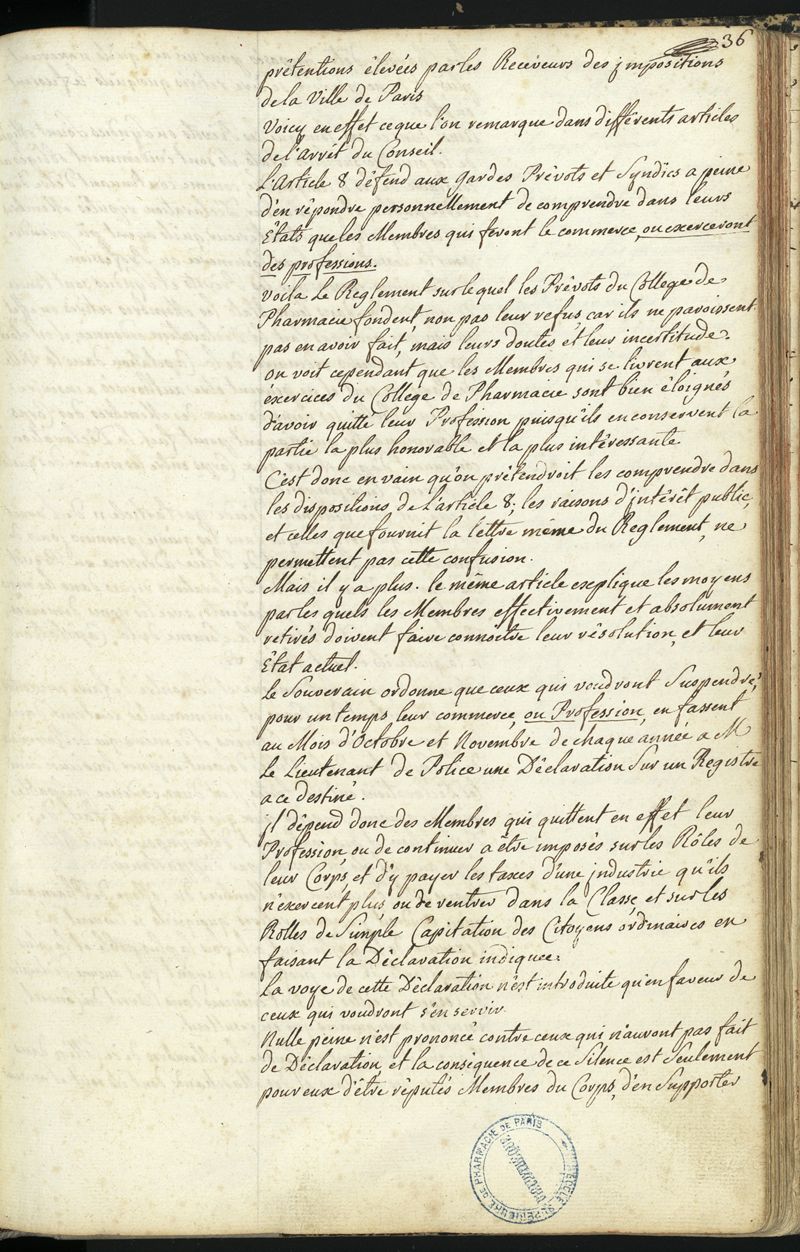 36
prétentions élevées par les Receveurs des jmpositions
de la Ville de Paris
Voicy en effet ce que l'on remarque dans différents articles
de l'arrêt du Conseil.
L'Article 8 défend aux Gardes Prévots et Syndics a peine
d'en répondre personnellement de comprendre dans leurs
États que les Membres qui feront le commerce, ou exerceront
des professions.
Voila le Reglement sur le quel les Prévots du College de
Pharmacie fondent, non pas leur refus car ils ne paroissent
pas en avoir fait, mais leurs doutes et leur incertitude.
on voit cependant que les Membres qui se livrent aux
éxercices du College de Pharmacie sont bien éloignés
d'avoir quitté leur Profession puisqu'ils en conservent la
partie la plus honorable et la plus intéressante
C'est donc en vain qu'on prétendroit les comprendre dans
les dispositions de L'article 8; les raisons d'jntérêt public,
et celles que fournit la lettre même du Reglement, ne
permettent pas cette confusion.
Mais il y a plus. le même article explique les moyens
par les quels les Membres effectivement et absolument
retirés doivent faire connoître leur résolution, et leur
État actuel.
Le Souverain ordonne que ceux qui voudront Suspendre,
pour un temps, leur commerce, ou Profession, en fassent
au Mois d'Octobre et Novembre de chaque année a M
Le Lieutenant de Police une Déclaration Sur un Registre
a ce destiné.
jl dépend donc des Membres qui quittent en effet leur
Profession ou de continuer a être imposés sur les Rôles de
leur Corps, et d'y payer les taxes d'une jndustrie qu'ils
n'exercent plus, ou de rentrer dans la Classe, et sur les
Rolles de Simple Capitation des Citoyens ordinaires en
faisant la Déclaration indiquee.
La voye de cette Déclaration n'est introduite qu'en faveur de
ceux qui voudront s'en servir.
Nulle peine n'est prononcé contre ceux qui n'auront pas fait
de Déclaration, et la conséquence de ce Silence est Seulement
pour eux d'être réputés Membres du Corps, d'en Supporter
ECOLE SUPERIEURE DE PHARMACIE DE PARIS
BIBLIOTHEQUE